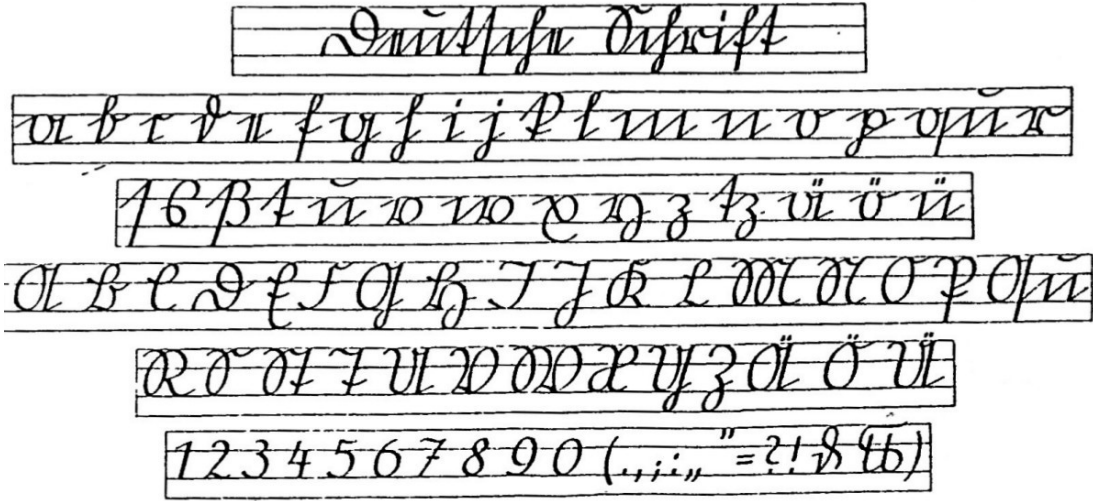 Deutsche Schrift
a b c d e f g h i j k l m n o p qu r
ſ s ß t u v w x y z tz ä ö ü
A B C D E F G H I J K L M N O P Qu
R S St T U V W X Y Z Ä Ö Ü
1 2 3 4 5 6 7 8 9 0 ( . , ; : „ " = ? ! § )